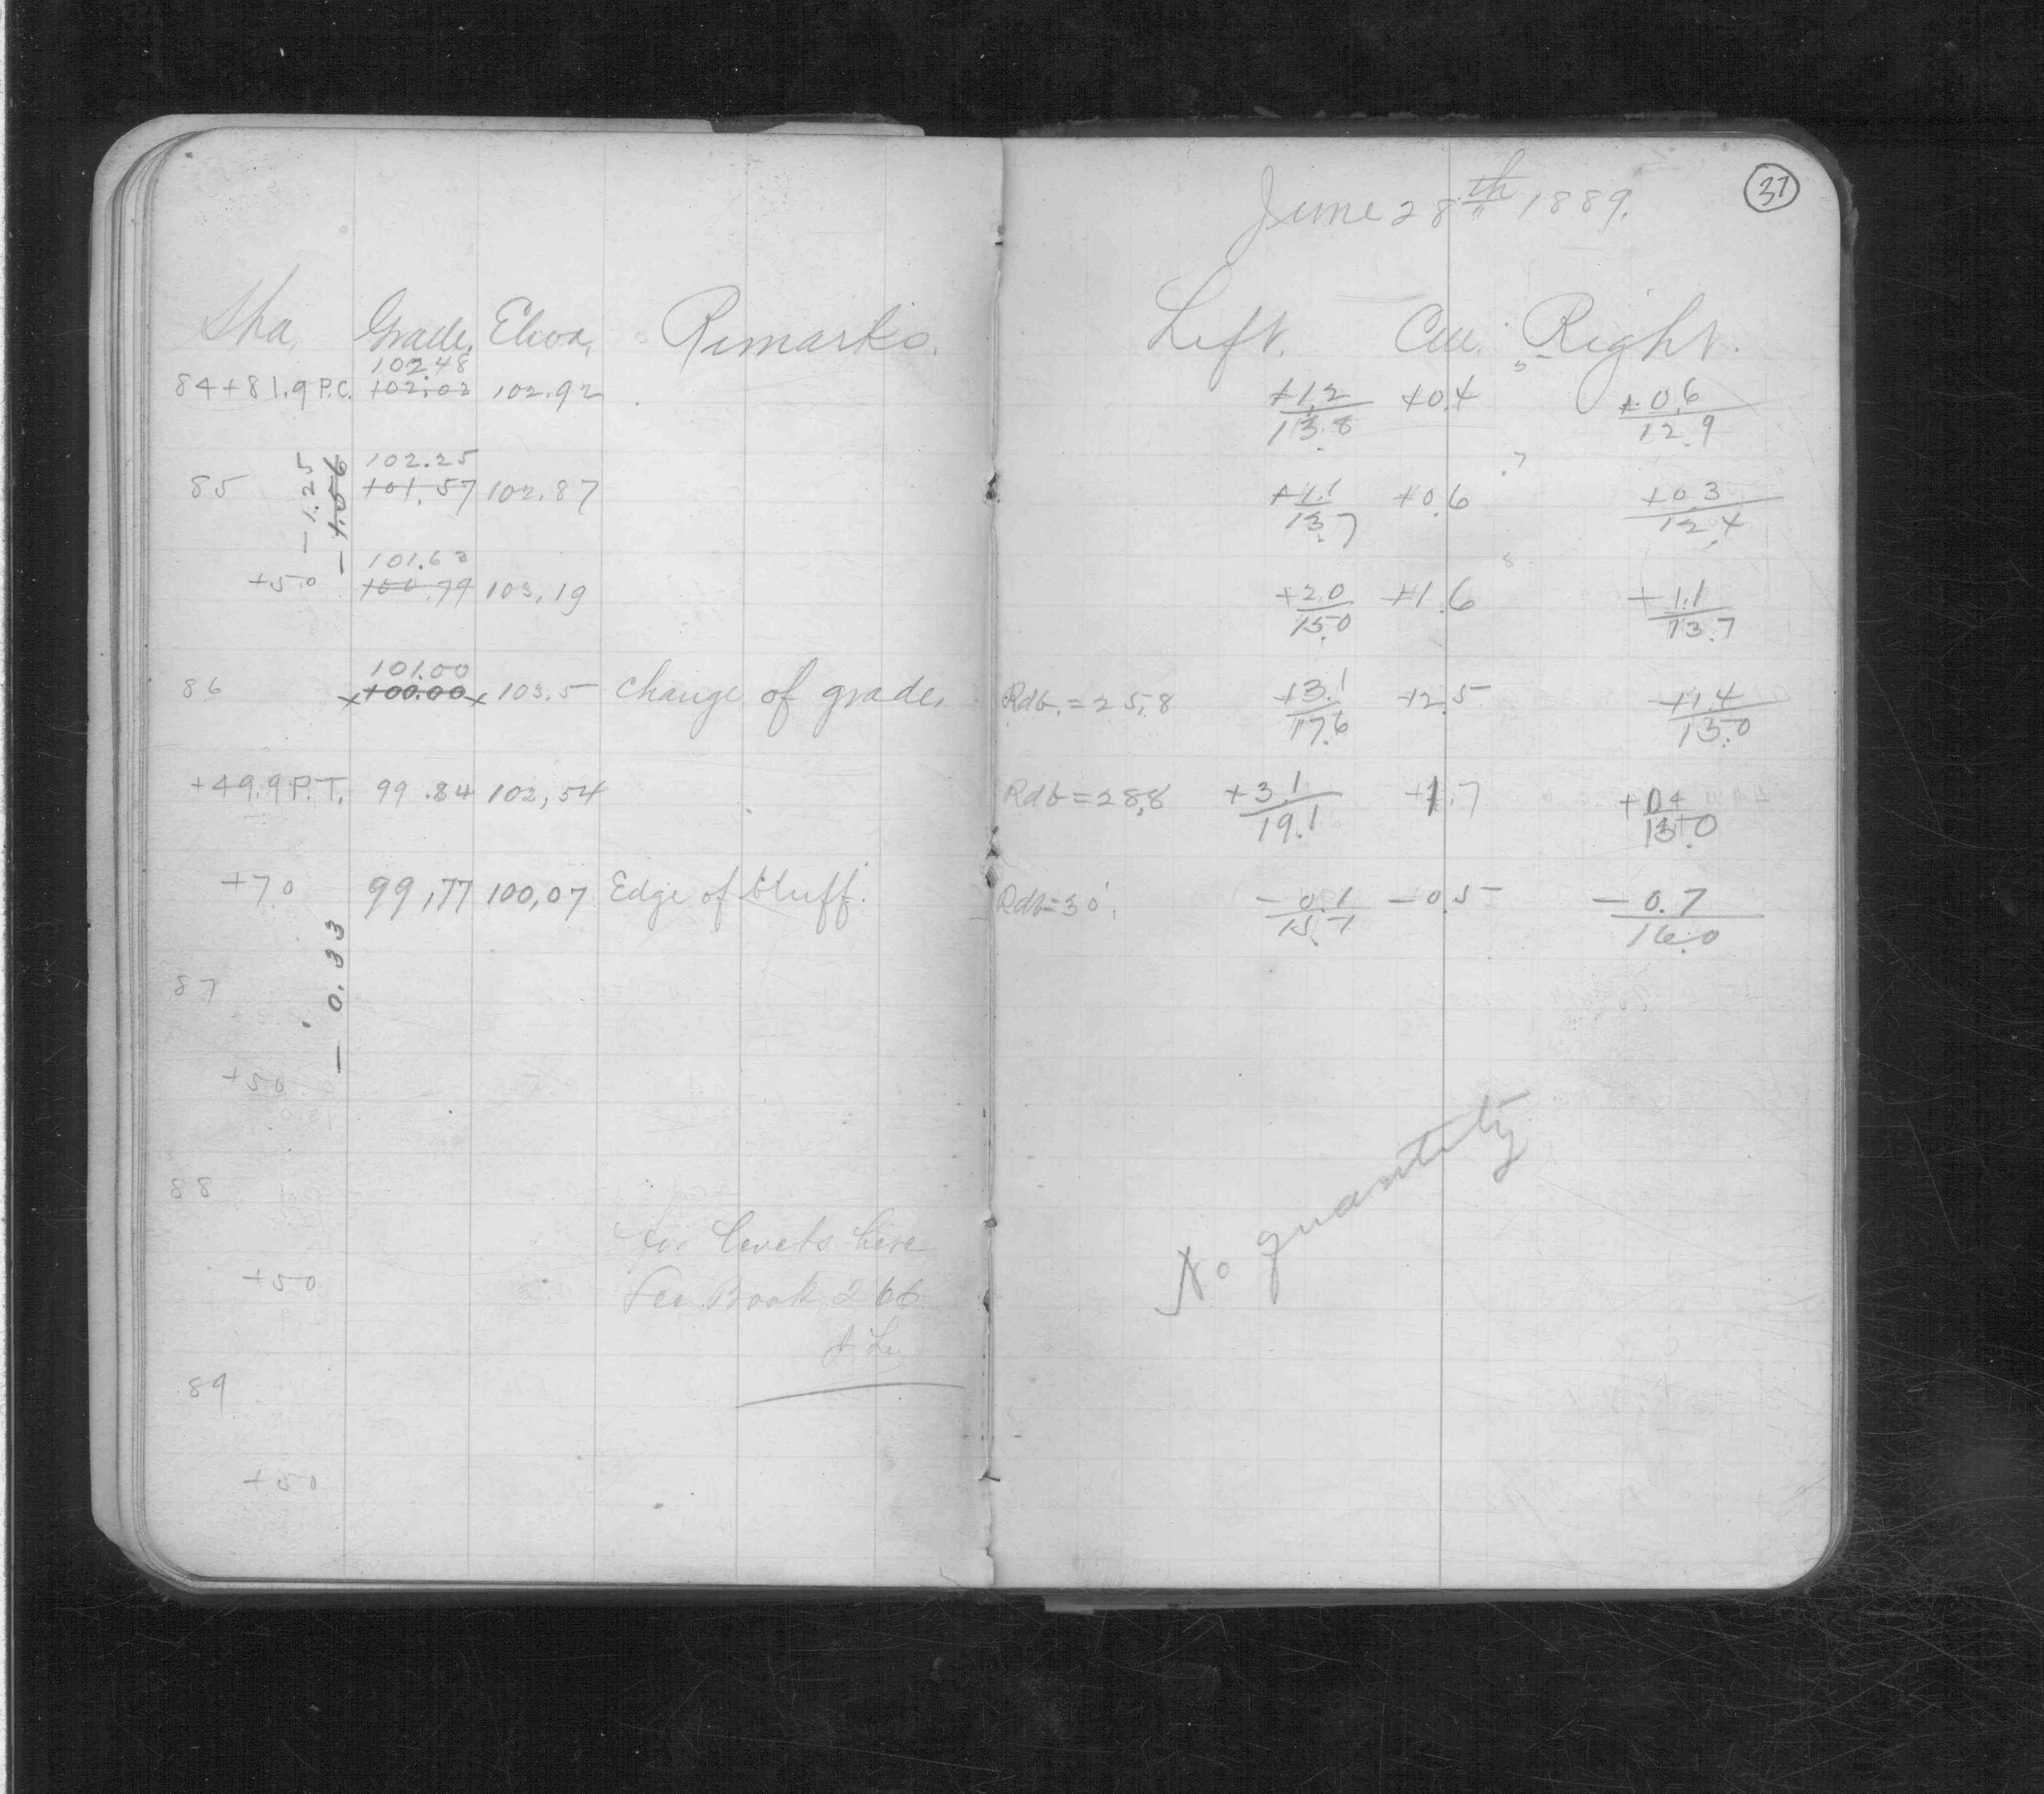 June 28th 1889.
37
Sta. Grade, Eleva, Remarks. Left. Cen. Right.
102.48
84+81.9 P.C. 102.02 102.92 +1.2/13.8 +0.4 +0.6/12.9
102.25
85 101.57 102.87 +1.1/13.7 +0.6 +0.3/12.4
-1.25
-1.56
101.63
+50 100.79 103.19 +2.0/15.0 +1.6 +1.1/13.7
101.00
86 x100.00x 103.5 Change of grade. Rdb. = 25.8 +3.1/17.6 +2.5 +1.4/15.0
+49.9 P.T. 99.84 102.54 Rdb = 28.8 +3.1/19.1 +1.7 +0.4/15.0
+70 99.77 100.07 Edge of bluff. Rdb = 30'. -0.1/15.7 -0.5 -0.7/16.0
-0.33
87
+50
88
for levels here
+50 See Book 266
89
+50
No quantity